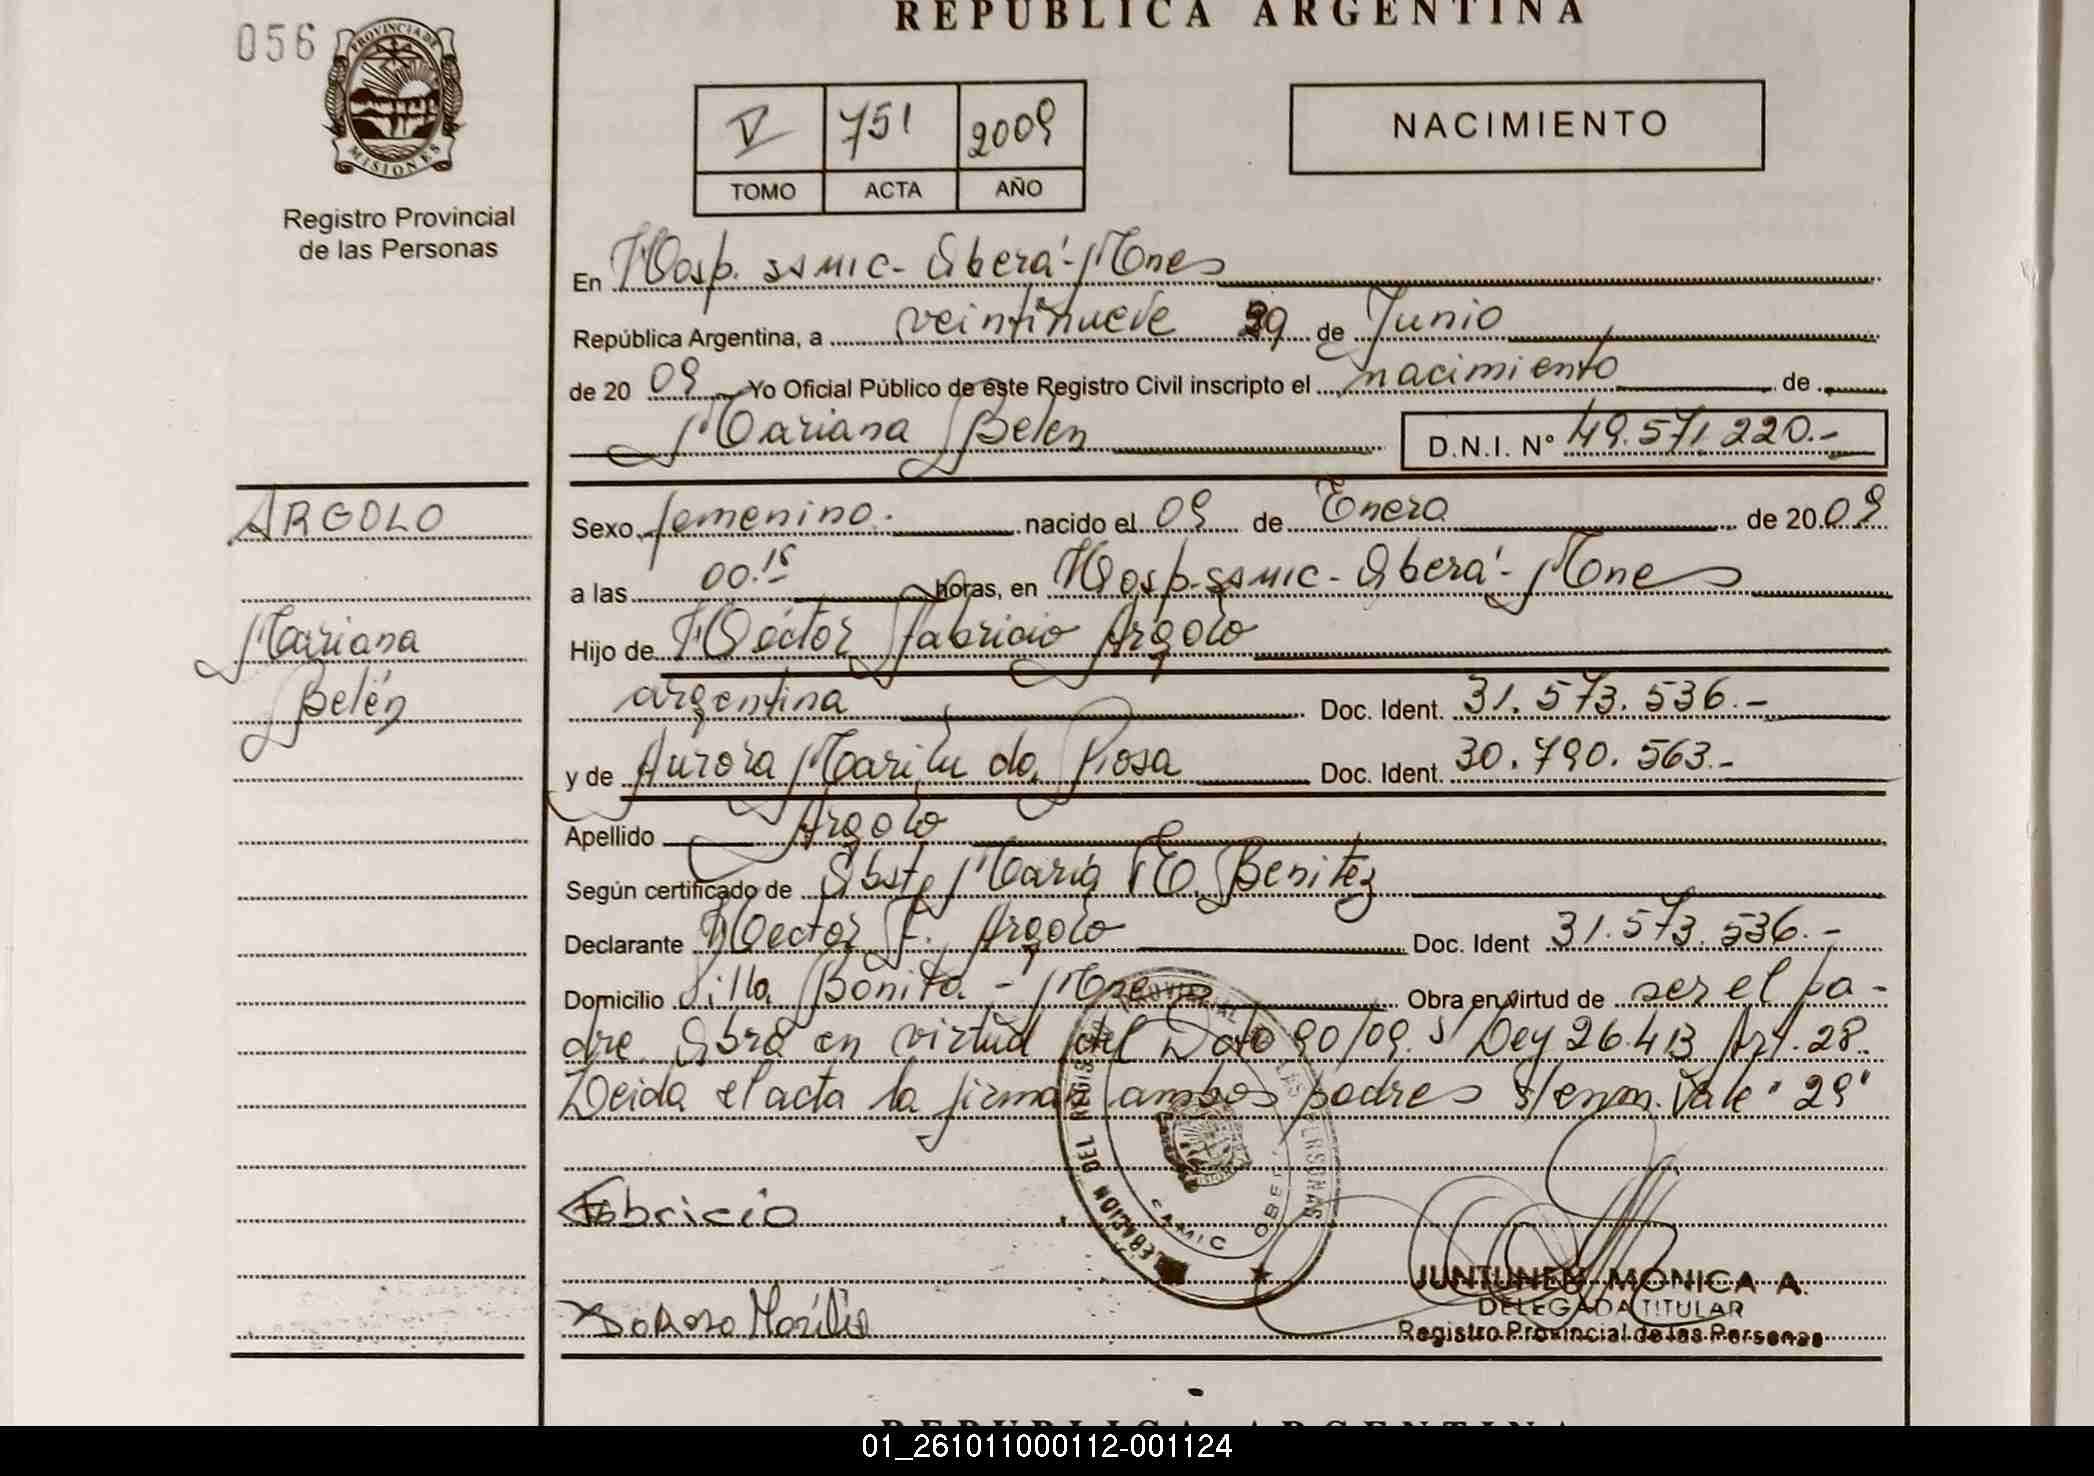 REPUBLICA ARGENTINA
056
PROVINCIA DE
MISIONES
Registro Provincial
de las Personas
V 751 2009
TOMO ACTA AÑO
NACIMIENTO
En Hosp. SAMIC - Oberá - Mnes
República Argentina, a veintinueve 29 de Junio
de 20 09 Yo Oficial Público de este Registro Civil inscripto el nacimiento de
Mariana Belen D.N.I. Nº 49.571.220.-
ARGOLO
Mariana
Belén
Sexo femenino. nacido el 09 de Enero de 20 09
a las 00.15 horas, en Hosp. SAMIC - Oberá - Mnes
Hijo de Héctor Fabricio Argolo
argentina Doc. Ident. 31.573.536.-
y de Aurora Marilu da Rosa Doc. Ident. 30.790.563.-
Apellido Argolo
Según certificado de Obst. Maria E. Benitez
Declarante Hector F. Argolo Doc. Ident 31.573.536.-
Domicilio Villa Bonita - Mnes Obra en virtud de ser el pa-
dre. Obra en virtud del Dcto 90/09. s/ Ley 26.413 Art. 28.
Leida el acta la firman ambos padres s/enm. Vale "29"
Fabricio
SAMIC OBERA
DaRosa Marilu
JUNTUNEN MONICA A.
DELEGADA TITULAR
Registro Provincial de las Personas
REPUBLICA ARGENTINA
01_261011000112-001124